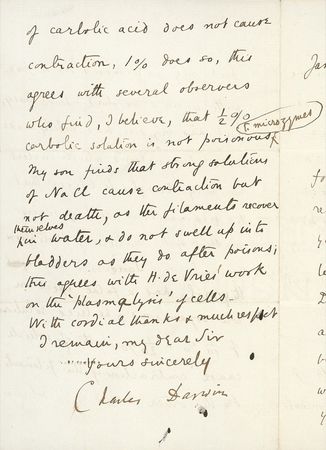 of carbolic acid does not cause
contraction, 1% does so, this
agrees with several observers
who find, I believe, that ½ %
carbolic solution is not poisonous to microzymes
My son finds that strong solutions
of NaCl cause contraction but
not death, as the filaments recover
themselves in water, & do not swell up into
bladders as they do after poisons;
this agrees with H. de Vries' work
on the "plasmolysis" of cells.—
With cordial thanks & much respect
I remain, my dear Sir
yours sincerely
Charles Darwin